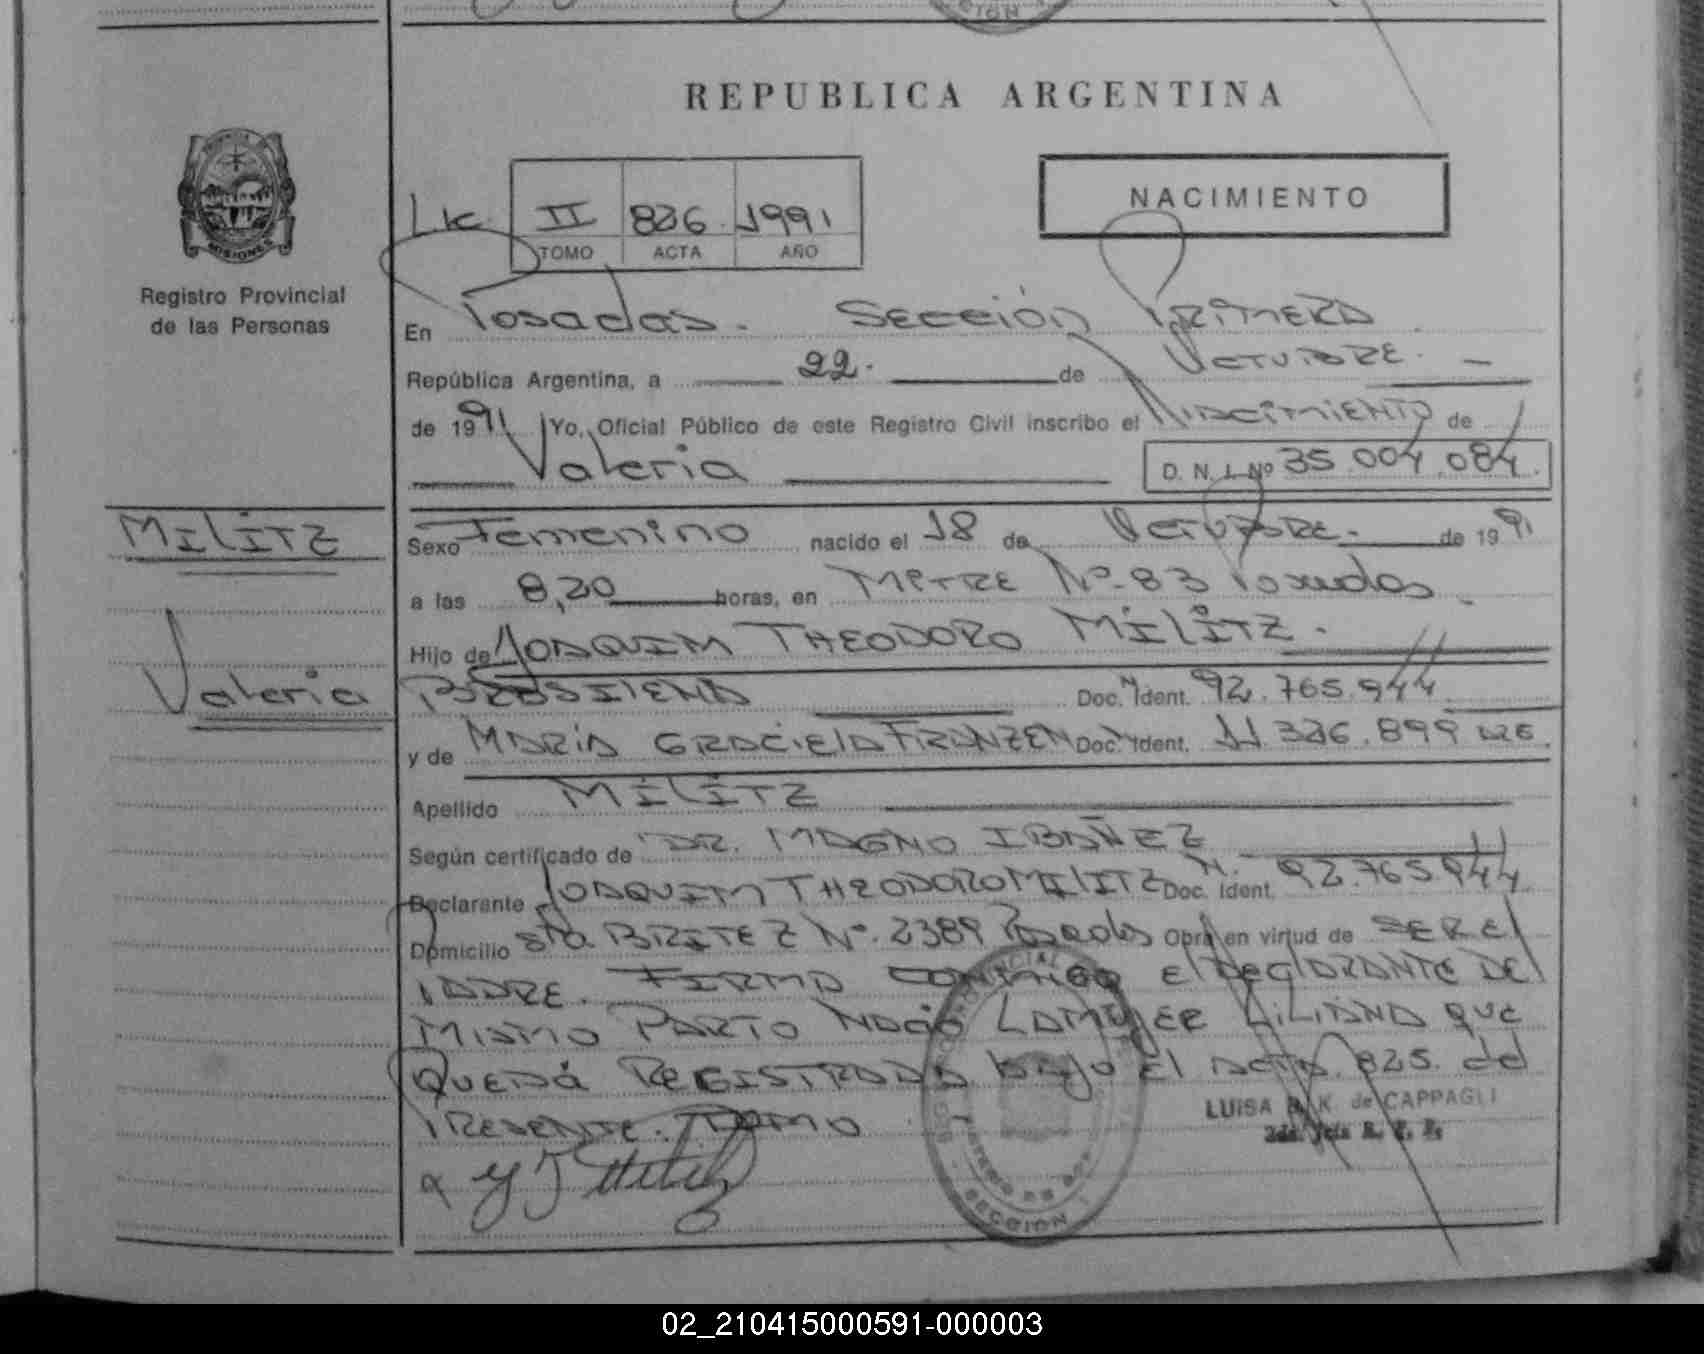 REPUBLICA ARGENTINA
NACIMIENTO
Lic. II 826 1991
TOMO ACTA AÑO
Registro Provincial
de las Personas
En Posadas. Sección Primera
República Argentina, a 22. de Octubre. -
de 1991 Yo, Oficial Público de este Registro Civil inscribo el Nacimiento de
Valeria D. N. I. Nº 35.004.084.
MILITZ
Sexo Femenino nacido el 18 de Octubre. de 1991
a las 8,20 horas, en Mitre Nº 83 Posadas
Hijo de JOAQUIM THEODORO MILITZ.
Valeria
BRASILENA Doc. N Ident. 92.765.944
y de MARIA GRACIELA FRANZEN Doc. N Ident. 11.326.899
Apellido MILITZ
Según certificado de DR. MAGNO IBAÑEZ
Declarante JOAQUIM THEODORO MILITZ Doc. N. Ident. 92.765.944
Domicilio Nº. 2389 Posadas Obra en virtud de SER El
PADRE. FIRMA CONMIGO El DEClARANTE DEl
MISMO PARTO NACIÓ LA MUJER LILIANA QUE
QUEDA REGISTRADA bajo El ACTA. 825. del
PRESENTE. TOMO
LUISA K. de CAPPAGLI
SECCION 1
02_210415000591-000003